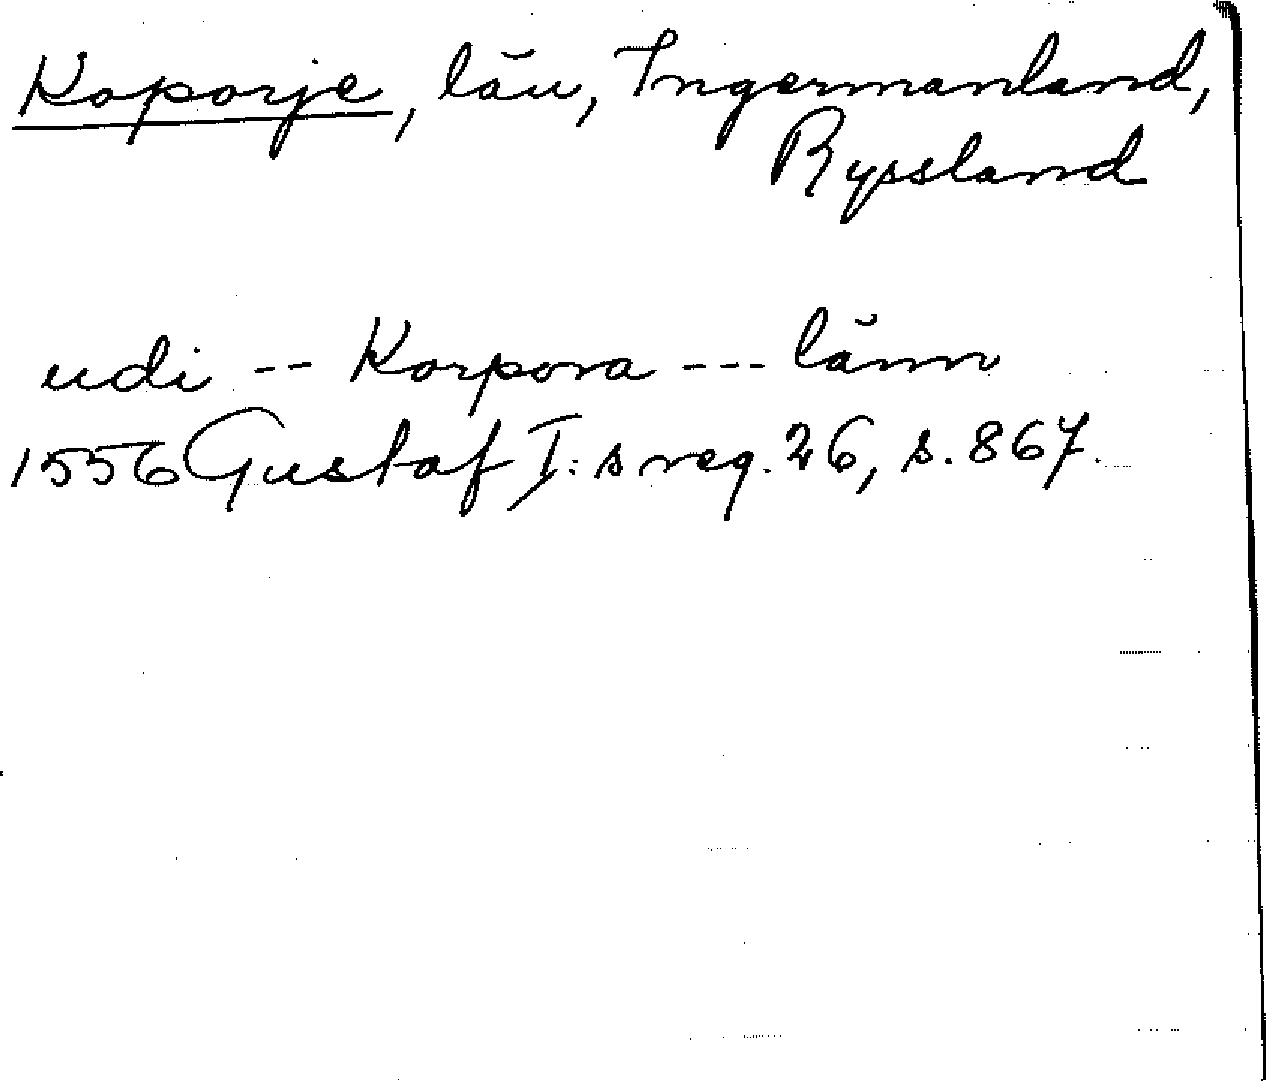 Koporje, län, Ingermanland,
Ryssland
udi -- Korpora --- länn
1556 Gustaf I:s reg. 26, s. 867.